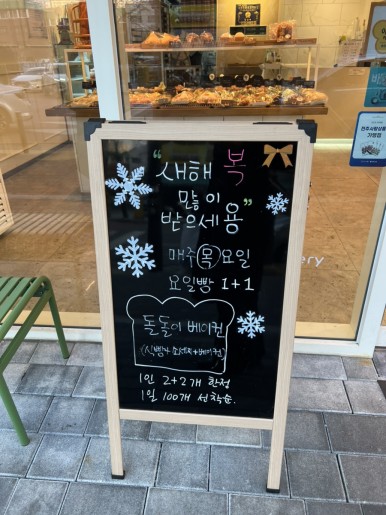 "새해 복
많이
받으세용"
매주 목요일
요일빵 1+1
돌돌이 베이컨
(식빵+소세지+베이컨)
1인 2+2개 한정
1일 100개 선착순.